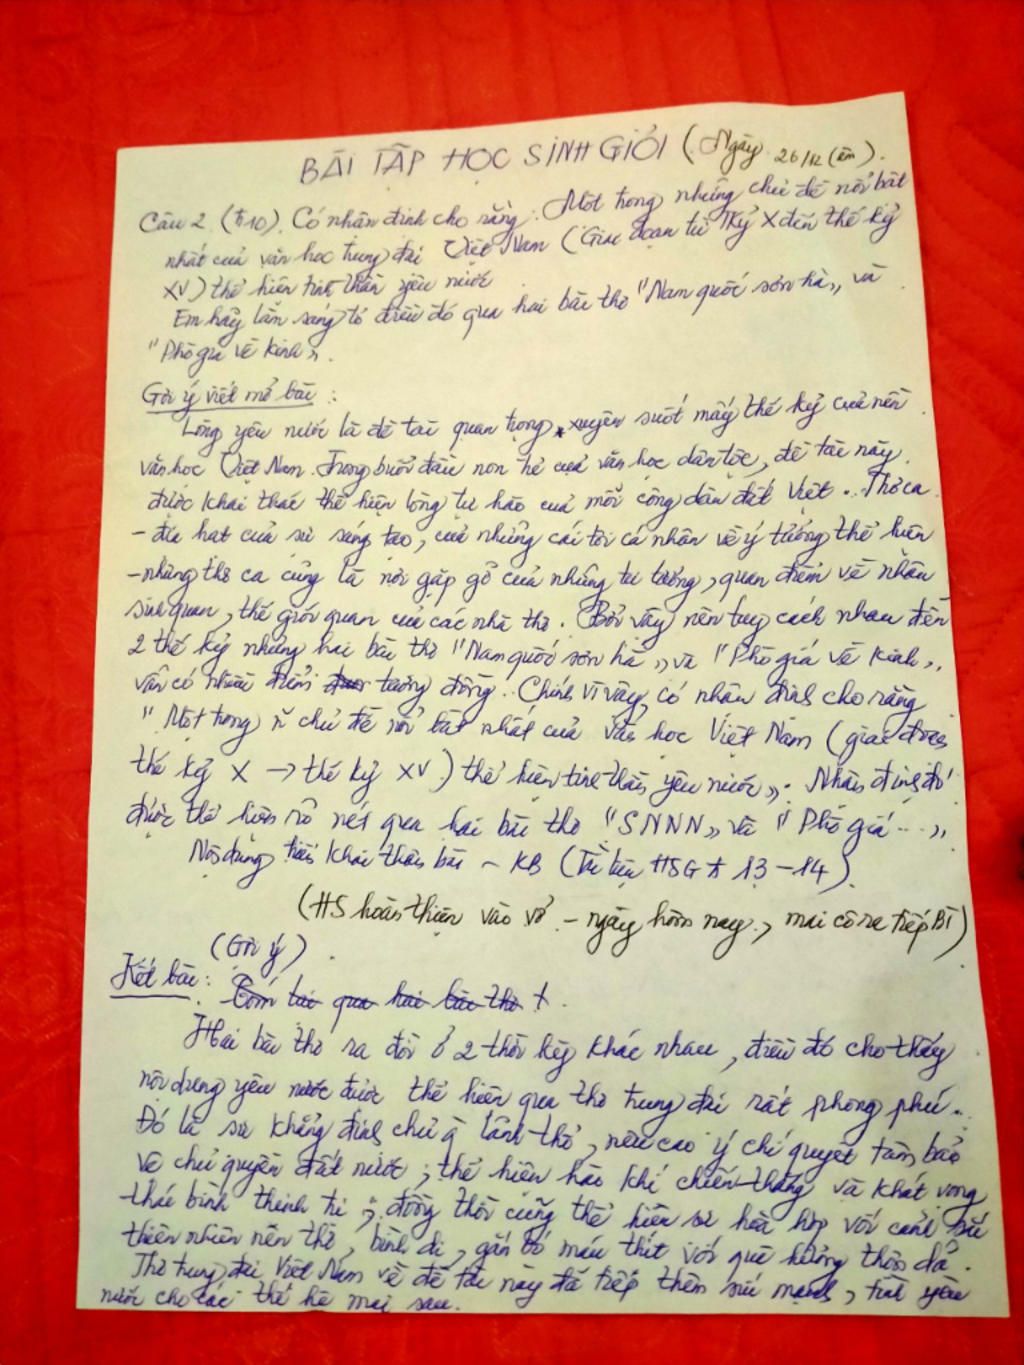 BÀI TẬP HỌC SINH GIỎI (Ngày 26/12 (âm).
Câu 2. (đ10). Có nhận định cho rằng: Một trong những chủ đề nổi bật
nhất của văn học trung đại Việt Nam (Giai đoạn từ Tkỷ X đến thế kỷ
XV) thể hiện tinh thần yêu nước
Em hãy làm sáng tỏ điều đó qua hai bài thơ "Nam quốc sơn hà" và
"Phò giá về kinh".
Gợi ý viết mở bài:
Lòng yêu nước là đề tài quan trọng xuyên suốt mấy thế kỷ của nền
văn học Việt Nam. Trong buổi đầu non trẻ của văn học dân tộc, đề tài này
được khai thác thể hiện lòng tự hào của mỗi công dân đất Việt. Thơ ca
- địa hạt của sự sáng tạo, của những cái tôi cá nhân về ý tưởng thể hiện
- nhưng thơ ca cũng là nơi gặp gỡ của những tư tưởng, quan điểm về nhân
sinh quan, thế giới quan của các nhà thơ. Bởi vậy nên tuy cách nhau đến
2 thế kỷ nhưng hai bài thơ "Nam quốc sơn hà" và "Phò giá về kinh".
vẫn có nhiều điểm tương đồng. Chính vì vậy, có nhận định cho rằng
"Một trong ~ chủ đề nổi bật nhất của văn học Việt Nam (giai đoạn
thế kỷ X → thế kỷ XV) thể hiện tinh thần yêu nước". Nhận định đó
được thể hiện rõ nét qua hai bài thơ "SNNN" và "Phò giá..."
Nội dung triển khai thân bài - KB (Tài liệu HSG t 13 - 14).
(HS hoàn thiện vào vở - ngày hôm nay, mai cô ra tiếp BT)
(Gợi ý)
Kết bài: Tóm lại qua hai bài thơ t.
Hai bài thơ ra đời ở 2 thời kỳ khác nhau, điều đó cho thấy
nội dung yêu nước được thể hiện qua thơ trung đại rất phong phú.
Đó là sự khẳng định chủ q lãnh thổ, nêu cao ý chí quyết tâm bảo
vệ chủ quyền đất nước; thể hiện hào khí chiến thắng và khát vọng
thái bình thịnh trị; đồng thời cũng thể hiện sự hòa hợp với cảnh sắc
thiên nhiên nên thơ, bình dị, gắn bó máu thịt với quê hương thôn dã.
Thơ trung đại Việt Nam về đề tài này đã tiếp thêm sức mạnh, tình yêu
nước cho các thế hệ mai sau.